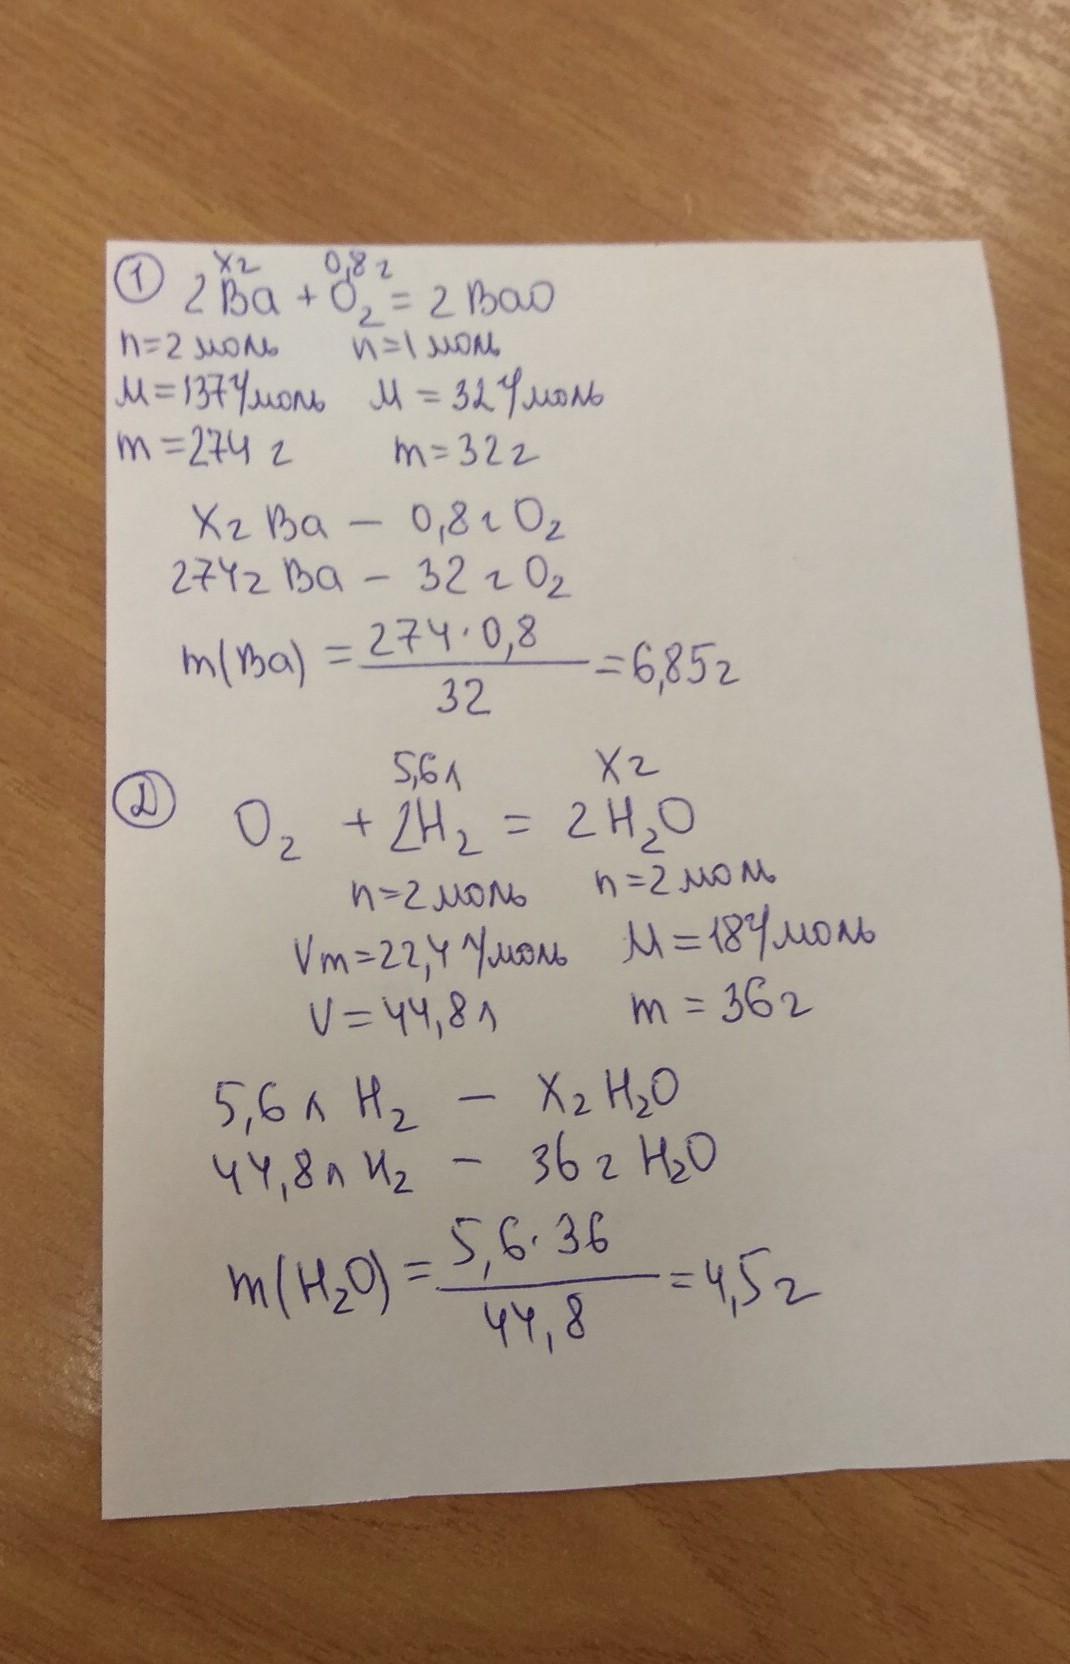 ① xг 0,8 г
2Ba + O₂ = 2BaO
n=2 моль n=1 моль
M=137 г/моль M = 32 г/моль
m=274 г m=32 г
xг Ba — 0,8 г O₂
274г Ba — 32 г O₂
m(Ba) = 274·0,8 / 32 = 6,85г
② 5,6л xг
O₂ + 2H₂ = 2H₂O
n=2моль n=2моль
Vm=22,4 л/моль M=18 г/моль
V=44,8л m = 36г
5,6 л H₂ — xг H₂O
44,8л H₂ — 36 г H₂O
m(H₂O) = 5,6·36 / 44,8 = 4,5г